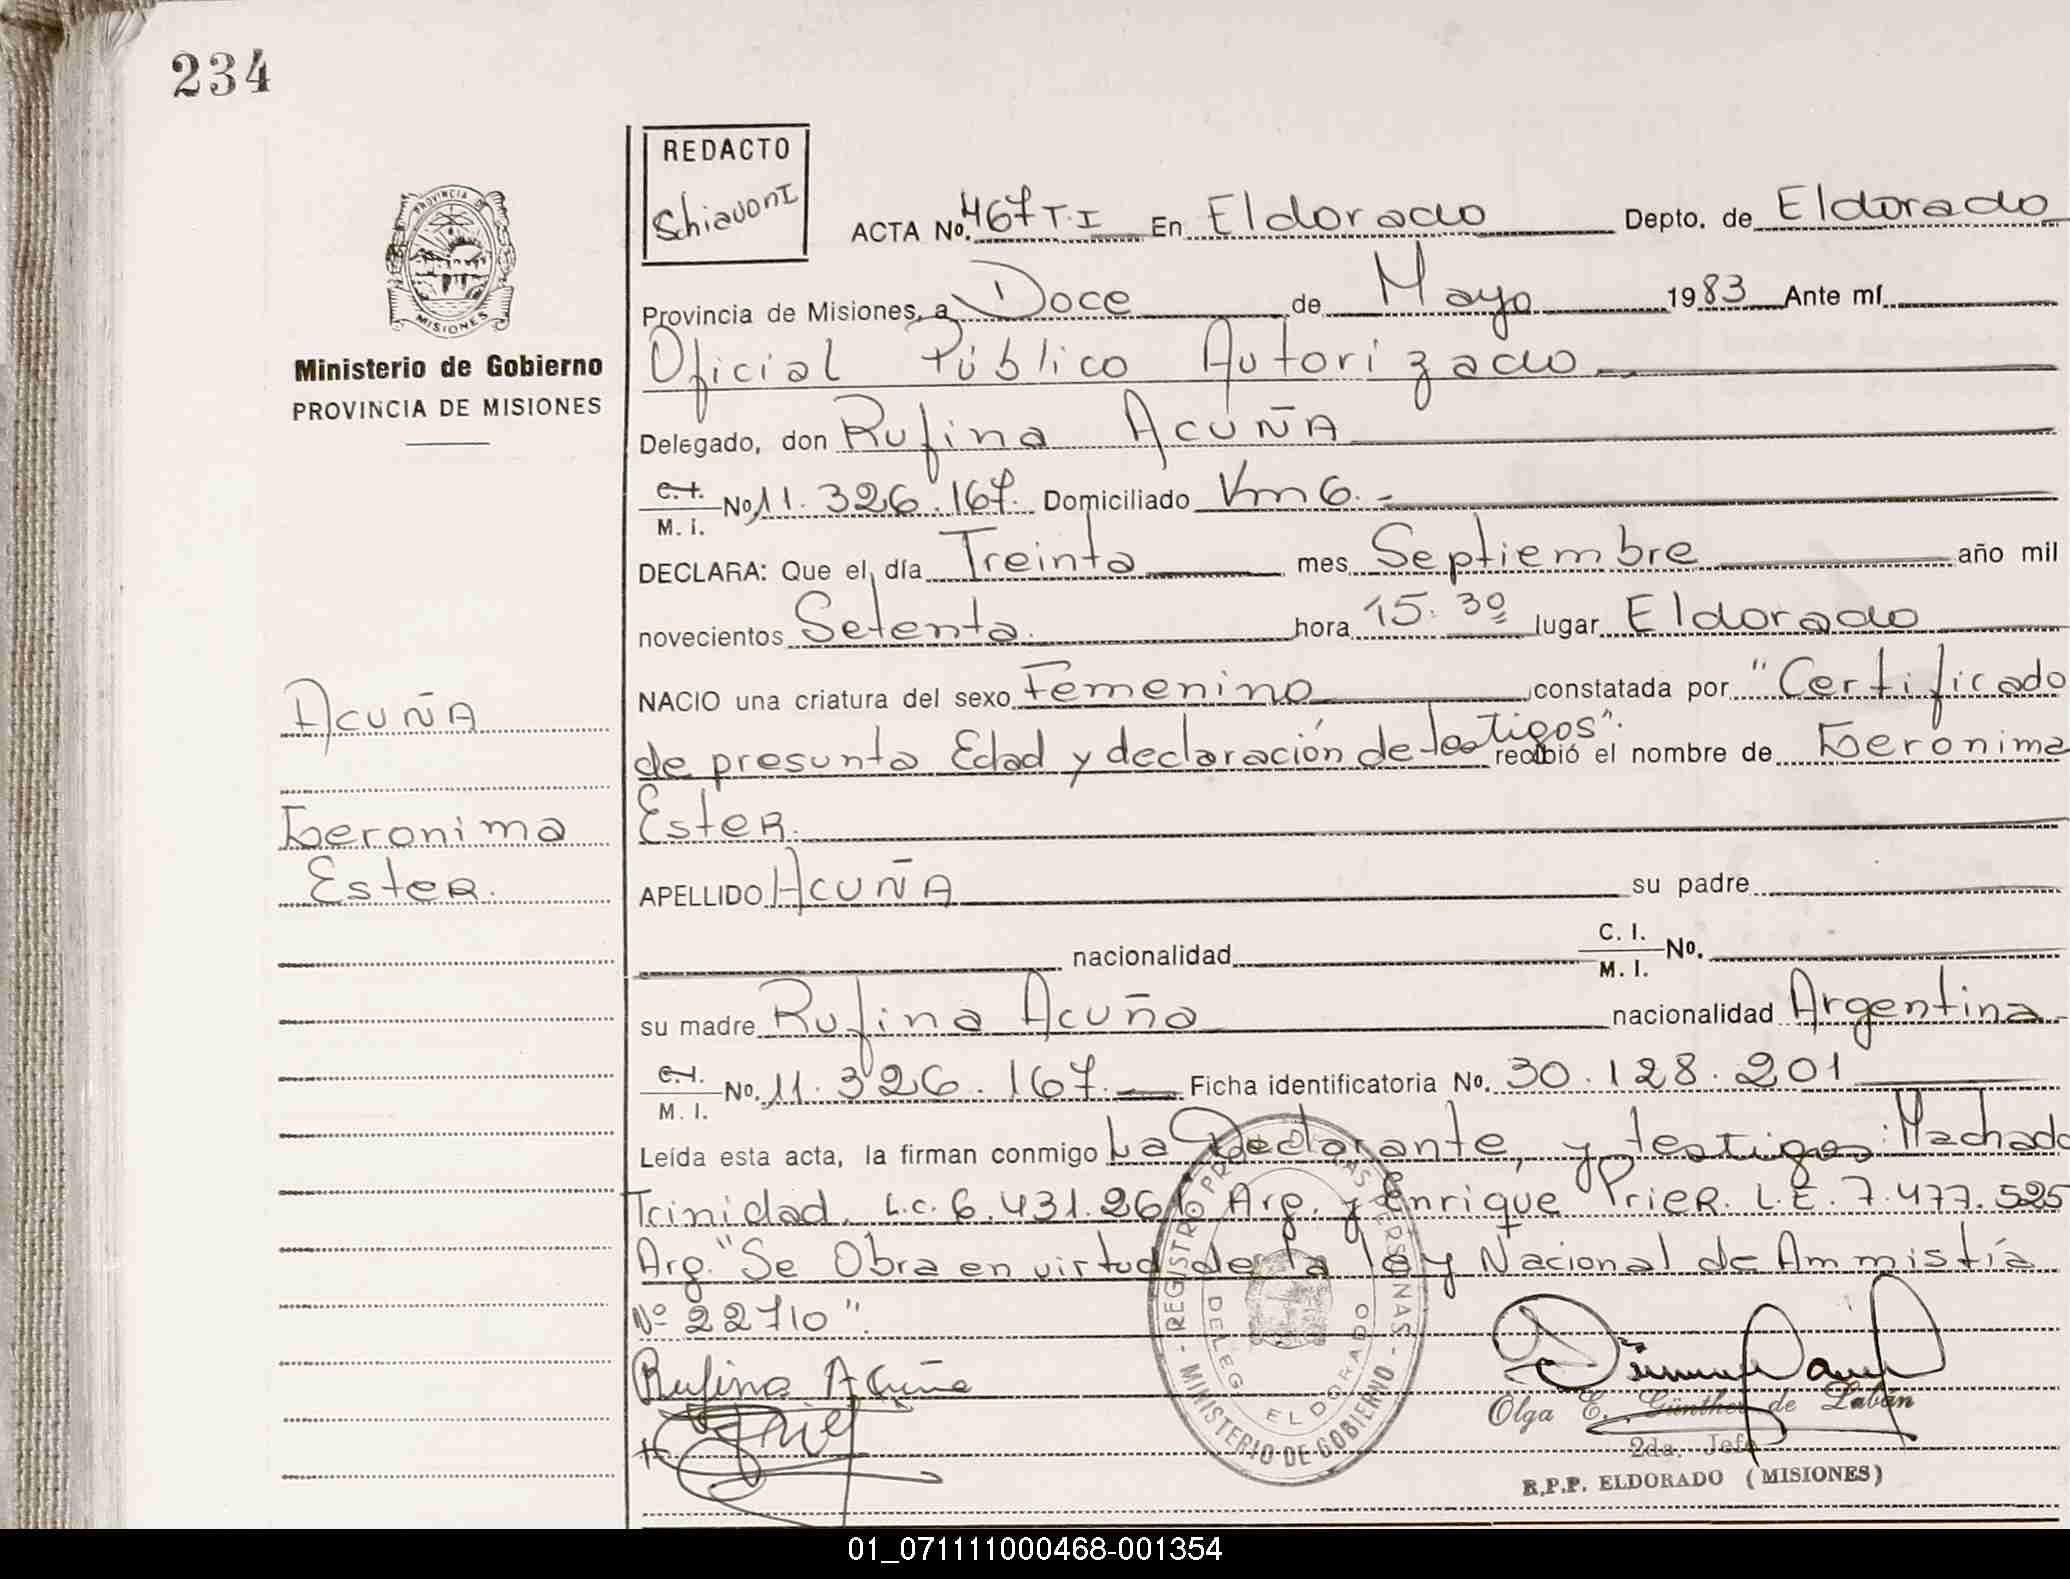 234
REDACTO
Schiavoni
ACTA No. 467 T.I En Eldorado Depto. de Eldorado
PROVINCIA DE
MISIONES
Ministerio de Gobierno
PROVINCIA DE MISIONES
Provincia de Misiones, a Doce de Mayo 1983 Ante mí
Oficial Público Autorizado
Delegado, don Rufina Acuña
C.I. M. I. No 11.326.167. Domiciliado Km 6.-
DECLARA: Que el día Treinta mes Septiembre año mil
novecientos Setenta. hora 15.30 lugar Eldorado
NACIO una criatura del sexo Femenino constatada por "Certificado
de presunta Edad y declaración de testigos". recibió el nombre de Geronima
Ester.
Acuña
Geronima
Ester.
APELLIDO Acuña su padre
nacionalidad C. I. M. I. No.
su madre Rufina Acuña nacionalidad Argentina
C.I. M. I. No. 11.326.167. Ficha identificatoria No. 30.128.201
Leída esta acta, la firman conmigo La Declarante, y testigos: Machado
Trinidad. L.C. 6.431.266 Arg. y Enrique Prier. L.E. 7.477.525
Arg. "Se Obra en virtud de la ley Nacional de Ammistía
Nº 22710".
Rufina Acuña
REGISTRO PROV. DE LAS PERSONAS - MINISTERIO DE GOBIERNO -
DELEG. ELDORADO
Olga E. Günther de Labán
2da. Jefe
R.P.P. ELDORADO (MISIONES)
01_071111000468-001354